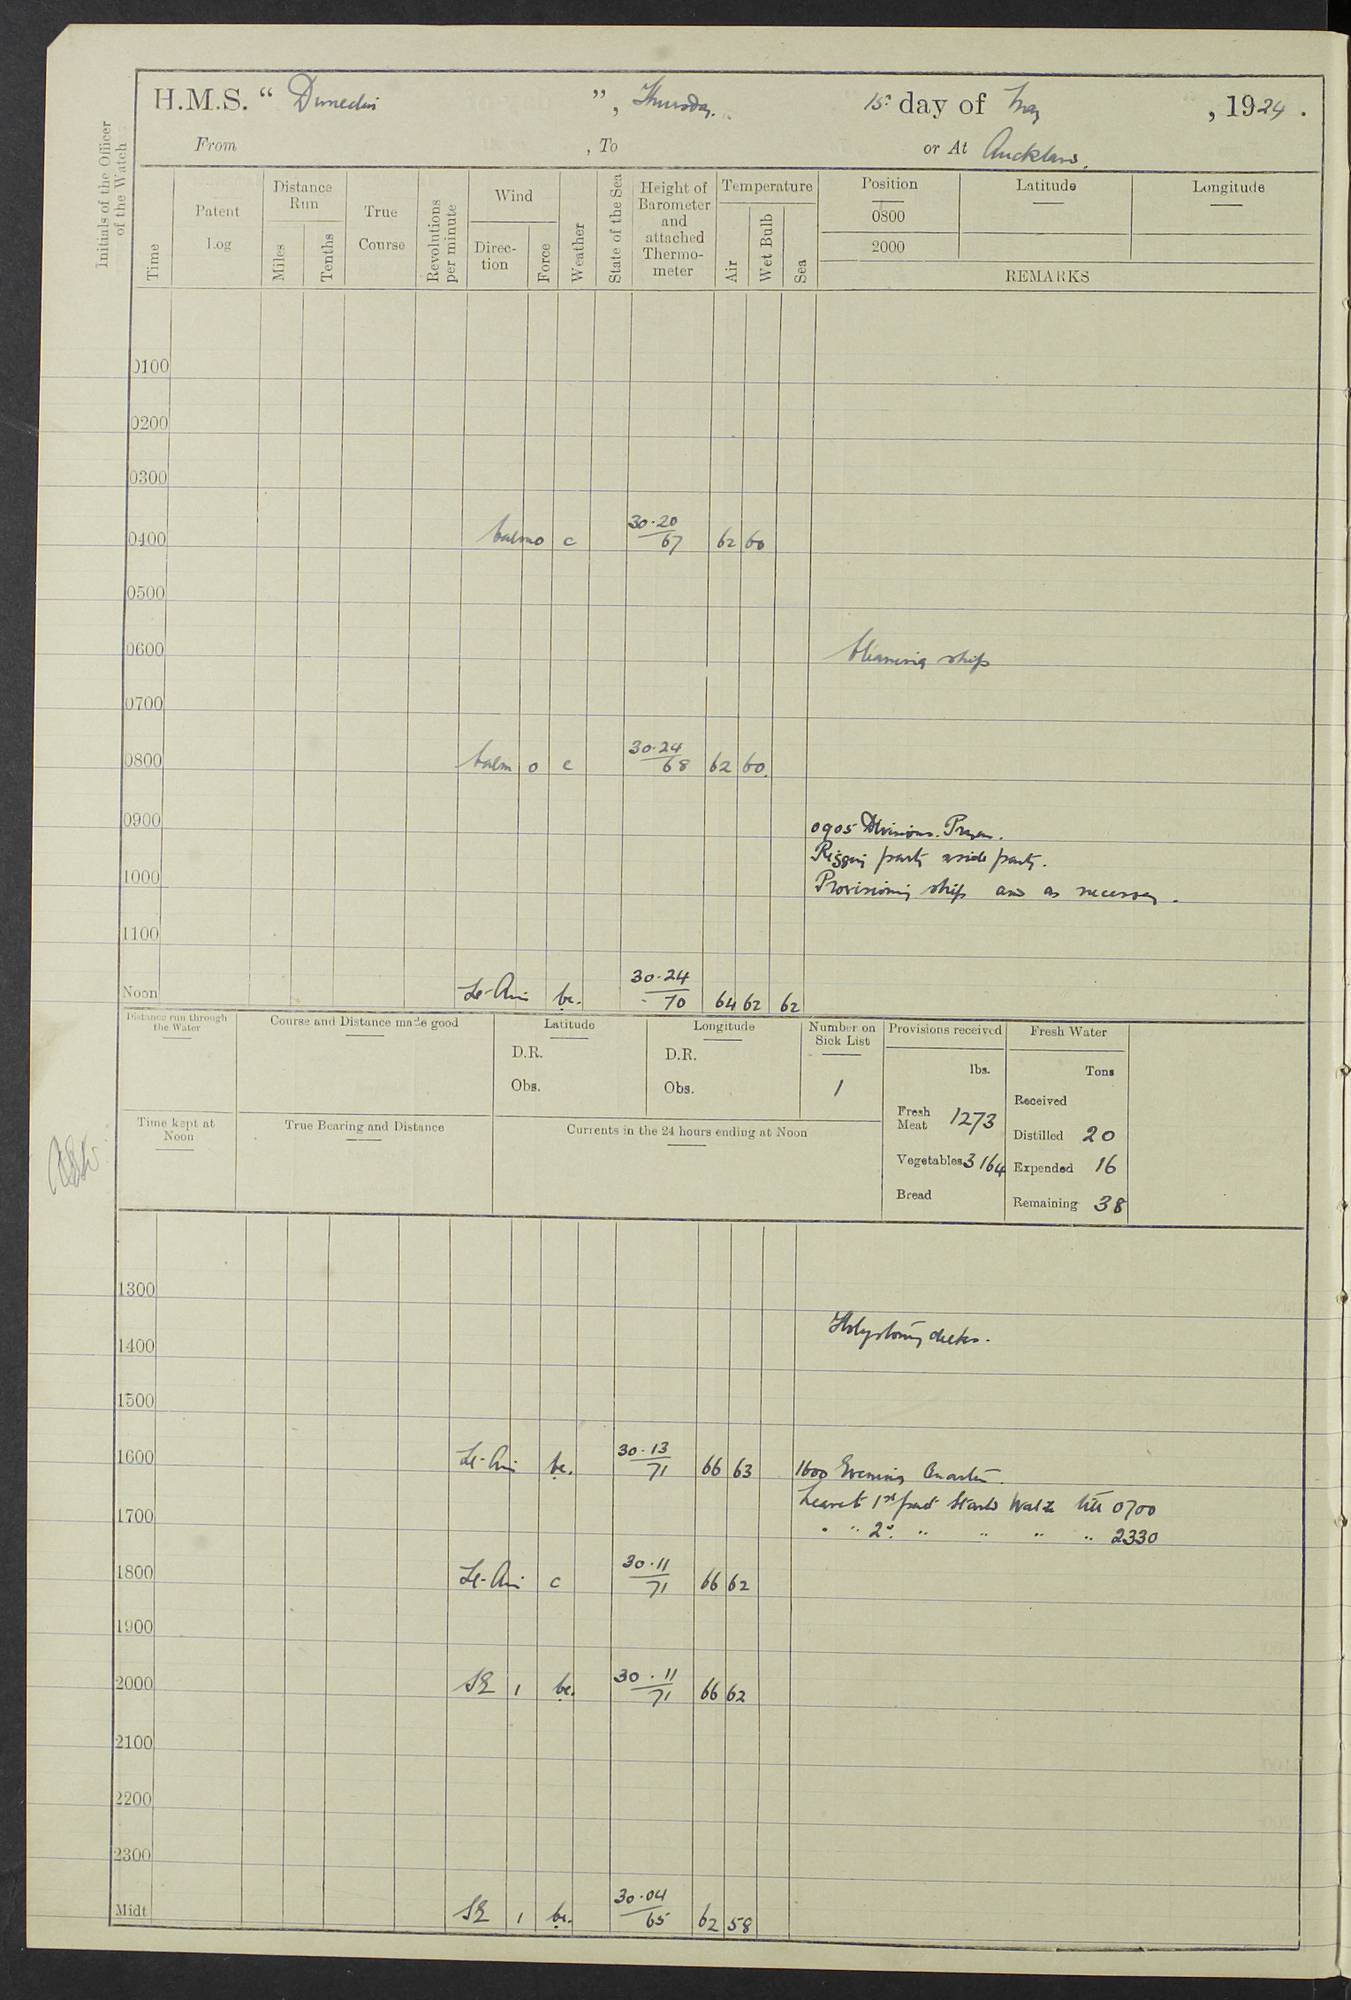 H.M.S. “ Dunedin ”, Thursday. 15th day of May, 1924.
From , To or At Auckland.
Initials of the Officer of the Watch
Time
Patent Log
Distance Run
Miles
Tenths
True Course
Revolutions per minute
Wind
Direc-tion
Force
Weather
State of the Sea
Height of Barometer and attached Thermo-meter
Temperature
Air
Wet Bulb
Sea
Position
0800
2000
Latitude
Longitude
REMARKS
0100
0200
0300
0400 Calm 0 c 30·20/67 62 60
0500
0600 Cleaning ship
0700
0800 Calm 0 c 30·24/68 62 60
0900 0905 Divisions. Prayers.
Rigging party aside party.
1000 Provisioning ship and as necessary.
1100
Noon Lt-Airs bc. 30·24/70 64 62 62
Distance run through the Water
Course and Distance made good
Latitude
D.R.
Obs.
Longitude
D.R.
Obs.
Number on Sick List
1
Provisions received
lbs.
Fresh Meat 1273
Vegetables 3164
Bread
Fresh Water
Tons
Received
Distilled 20
Expended 16
Remaining 38
Time kept at Noon
True Bearing and Distance
Currents in the 24 hours ending at Noon
1300
1400 Holystoning decks.
1500
1600 Lt-Airs bc. 30·13/71 66 63 1600 Evening Quarters.
Leave to 1st part Starbd Watch till 0700
1700 " " 2nd. " " " " 2330
1800 Lt-Airs c 30·11/71 66 62
1900
2000 SE 1 bc. 30·11/71 66 62
2100
2200
2300
Midt SE 1 bc. 30·04/65 62 58